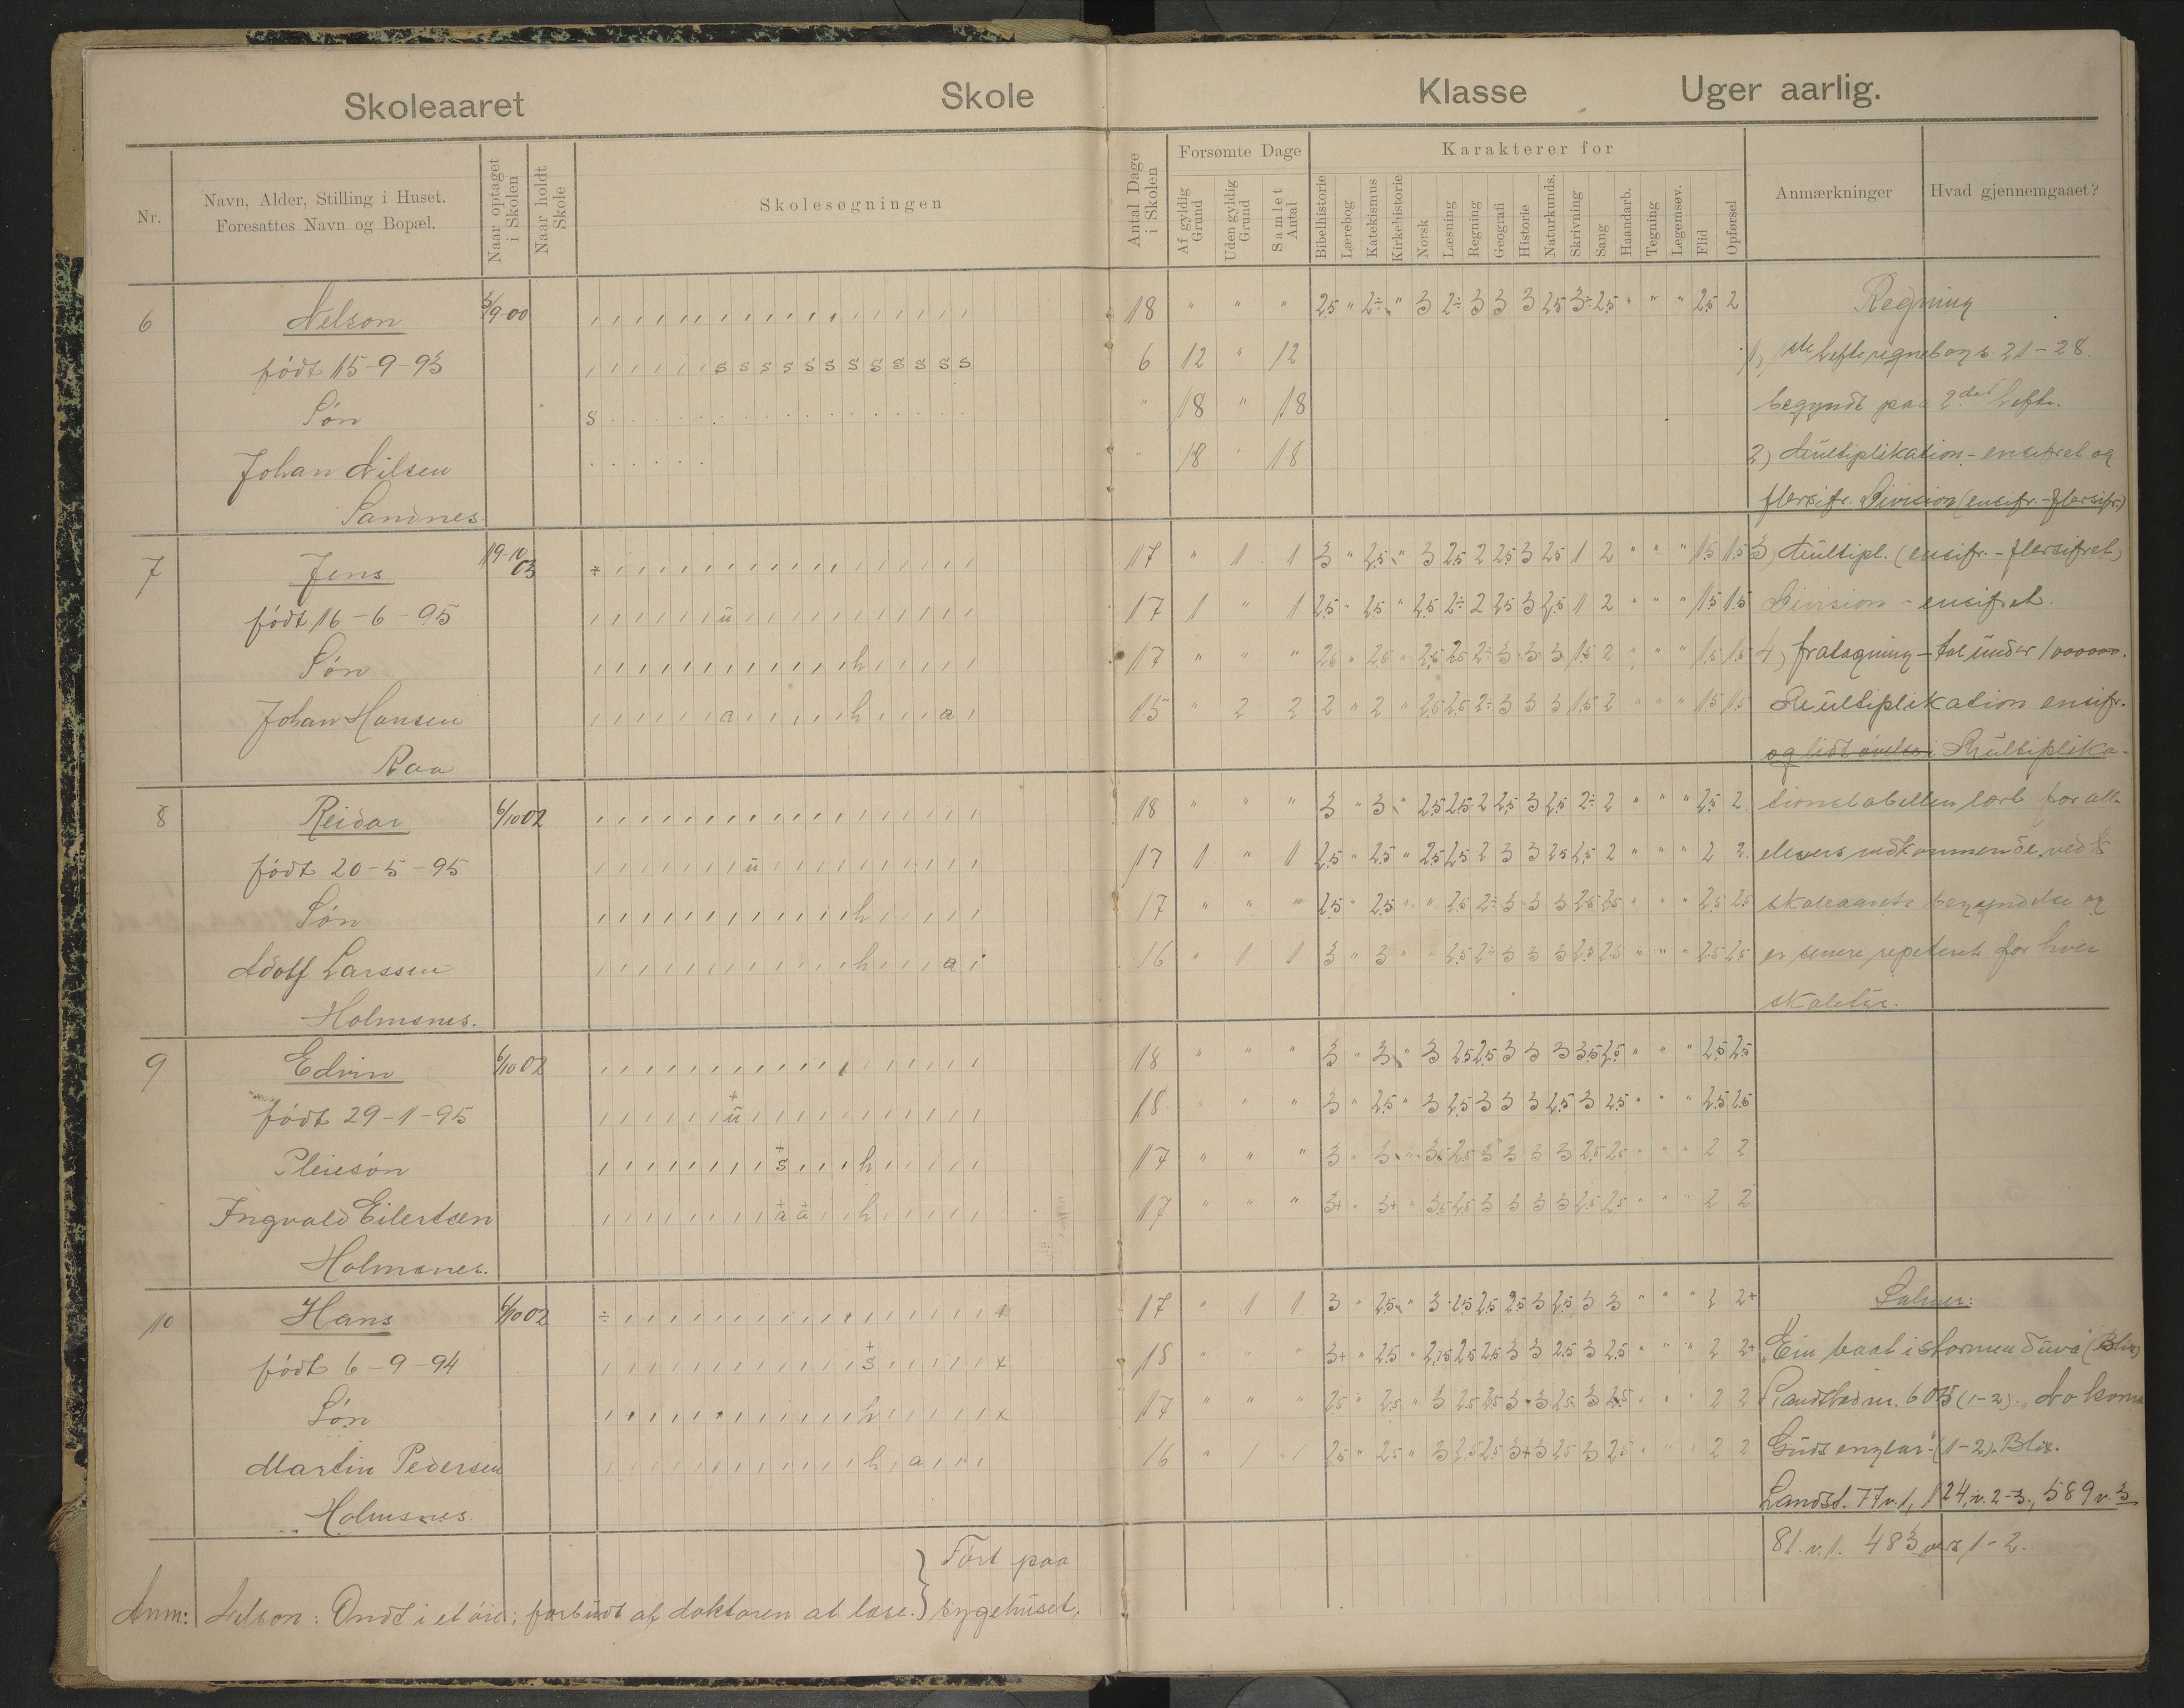 Skoleaaret Skole Klasse Uger aarlig.
Nr.
Navn, Alder, Stilling i Huset.
Foresattes Navn og Bopæl.
Naar optaget i Skolen
Naar holdt Skole
Skolesøgningen
Antal Dage i Skolen
Forsømte Dage
Af gyldig Grund
Uden gyldig Grund
Samlet Antal
Karakterer for
Bibelhistorie
Lærebog
Katekismus
Kirkehistorie
Norsk
Læsning
Regning
Geografi
Historie
Naturkunds.
Skrivning
Sang
Haandarb.
Tegning
Legemsøv.
Flid
Opførsel
Anmærkninger
Hvad gjennemgaaet?
6 Nelson 5/9 00 18 " " " 2,5 " 2÷ " 3 2÷ 3 3 3 2,5 3÷ 2,5 " " " 2,5 2 Regning
født 15-9-93 s s s s s s s s s s s s 6 12 " 12 1) ste hefte regnebog s. 21-28.
Søn s " 18 " 18 begyndt paa 2det hefte.
Johan Nilsen " 18 " 18 2) Multiplikation - ensifret og
Sandnes flersifr. Division (ensifr. - flersifr.)
7 Jens 19-10 03 ÷ 17 " 1 1 3 " 2,5 " 3 2,5 2 2,5 3 2,5 1 2 " " " 1,5 1,5 3) Multipl. (ensifr. - flersifret)
født 16-6-95 u 17 1 " 1 2,5 " 2,5 " 2,5 2÷ 2 2,5 3 2,5 1 2 " " " 1,5 1,5 Division - ensifret.
Søn h 17 " " " 2,5 " 2,5 " 2,5 2,5 2÷ 3 3 3 1,5 2 " " " 1,5 1,5 4) fratagning - tal under 1000000.
Johan Hansen a h a 15 " 2 2 2 " 2 " 2,5 2,5 2÷ 3 3 3 1,5 2 " " " 1,5 1,5 Multiplikation ensifr.
Raa og lidt øvelse i Multiplika-
8 Reidar 6/10 02 18 " " " 3 " 3 " 2,5 2,5 2 2,5 3 2,5 2÷ 2 " " " 2,5 2 tionstabellen lært for alle
født 20-5-95 u 17 1 " 1 2,5 " 2,5 " 2,5 2,5 2 3 3 2,5 2,5 2 " " " 2 2 elevers vedkommende ved
Søn h 17 " " " 2,5 " 2,5 " " 2,5 2÷ 3 3 3 2,5 2,5 " " " 2,5 2,5 skoleaarets begyndelse og
Adolf Larssen h a 16 " 1 1 3 " 3 " " 2,5 2÷ 3 3 3 2,5 2,5 " " " 2,5 2,5 er senere repetert for hver
Holmsnes. skoletur.
9 Edvin 6/10 02 18 " " " 3 " 3 " 3 2,5 2,5 3 3 3 3,5 2,5 " " " 2,5 2,5
født 29-1-95 u 18 " " " 3 " 2,5 " 3 2,5 3 3 3 2,5 3 2,5 " " " 2,5 2,5
Pleiesøn s h 17 " " " 3 " 3 " 3,5 2,5 3 3 3 3 2,5 2,5 " " " 2 2
Ingvald Eilertsen a a h 17 " " " 3+ " 3+ " 3,5 2,5 3 3 3 3 2,5 2,5 " " " 2 2
Holmsnes.
10 Hans 6/10 02 ÷ 17 " 1 1 3 " 2,5 " 3 2,5 2,5 2,5 3 2,5 3 3 " " " 2 2+ Salmer:
født 6-9-94 s x 18 " " " 3+ " 2,5 " 2,75 2,5 2,5 3 3 2,5 3 2,5 " " " 2 2+ "Ein baat i stormen duva" (Blix)
Søn h x 17 " " " 2,5 " 2,5 " 3 2,5 2,5 3 3 2,5 3 2,5 " " " 2 2 Landstad nr. 605 (1-2). "No koma
Martin Pedersen h a 16 " 1 1 2,5 " 2,5 " 3 2,5 2,5 3+ 3 2,5 3 2,5 " " " 2 2 Guds englar" (1-2). Blix.
Holmsnes. Landst. 77 v. 1, 124, v. 2-3., 589 v. 3
81 v. 1. 483 vers 1-2.
Anm: Nelson: Ondt i et øie; forbudt af doktoren at læse. } Ført paa
sygehuset.